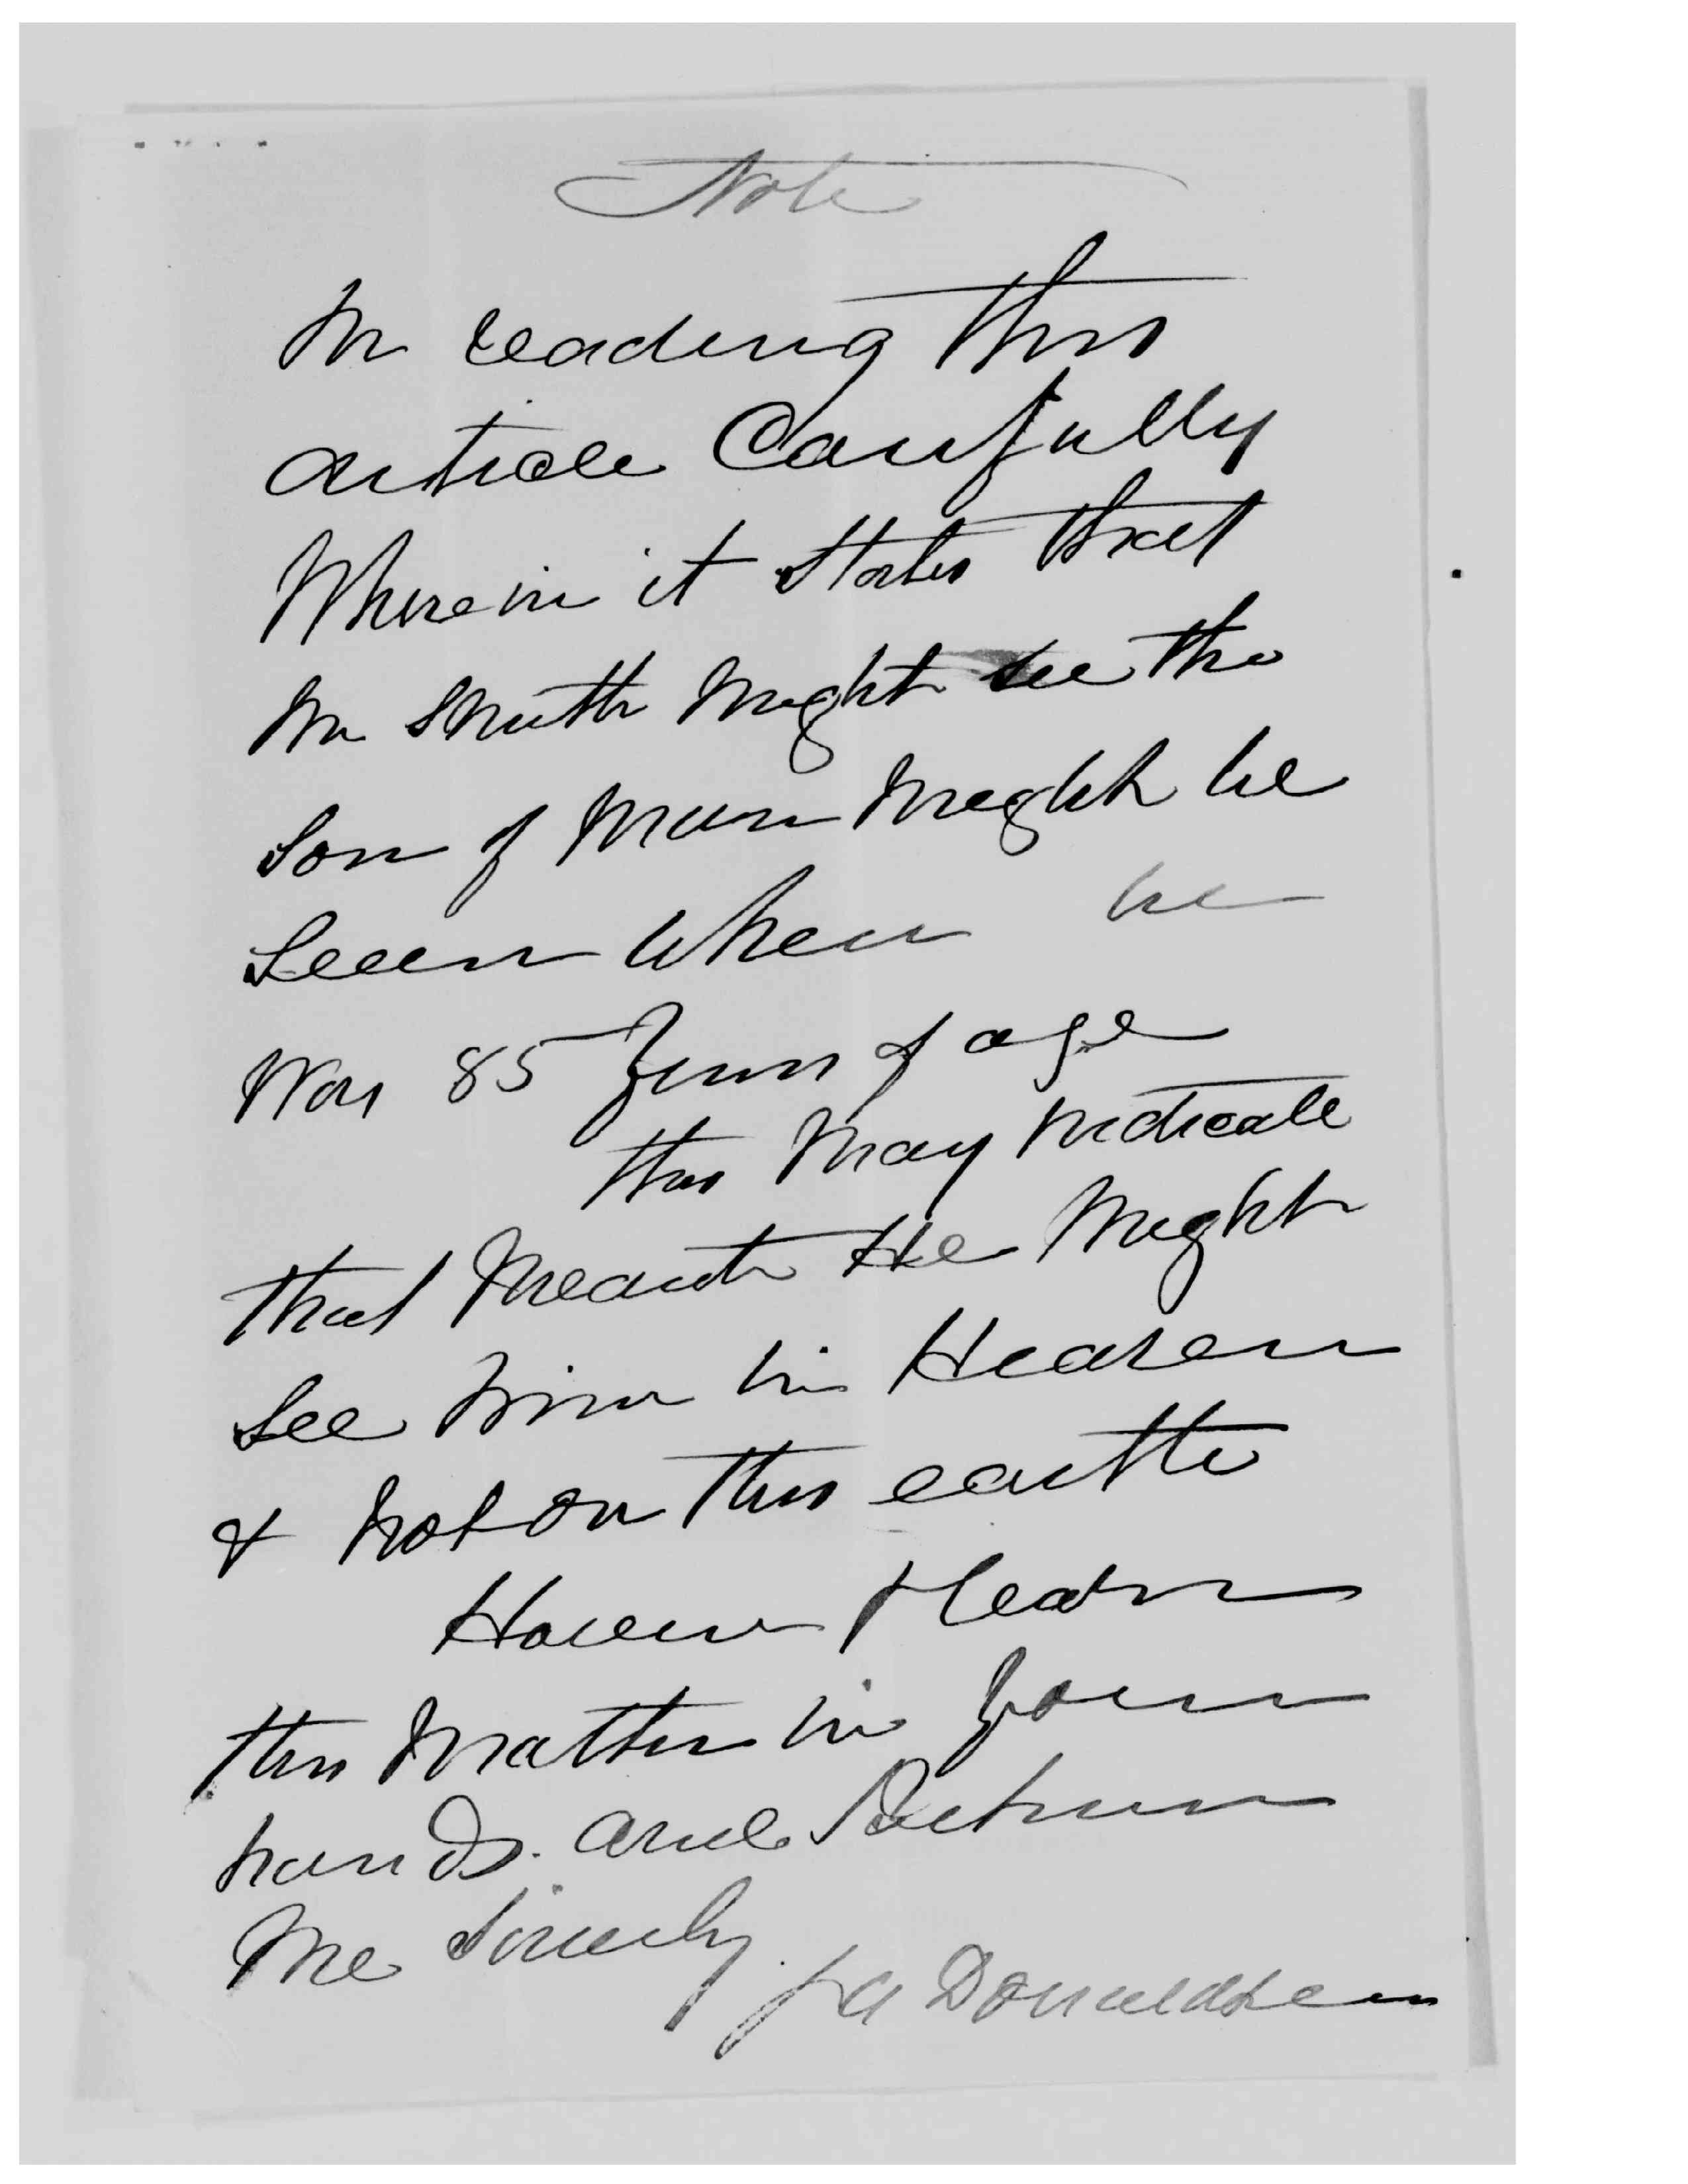 Note
In reading this
article Carefully
Wherein it States that
Mr Smith Might see the
Son of Man Might be
Seen when he
Was 85 Years of age
this May indicate
that Meant He Might
See him in Heaven
& Not on this earth
However
this Matter in Your
hands. and Return
Me Sincerely
J A Donaldson